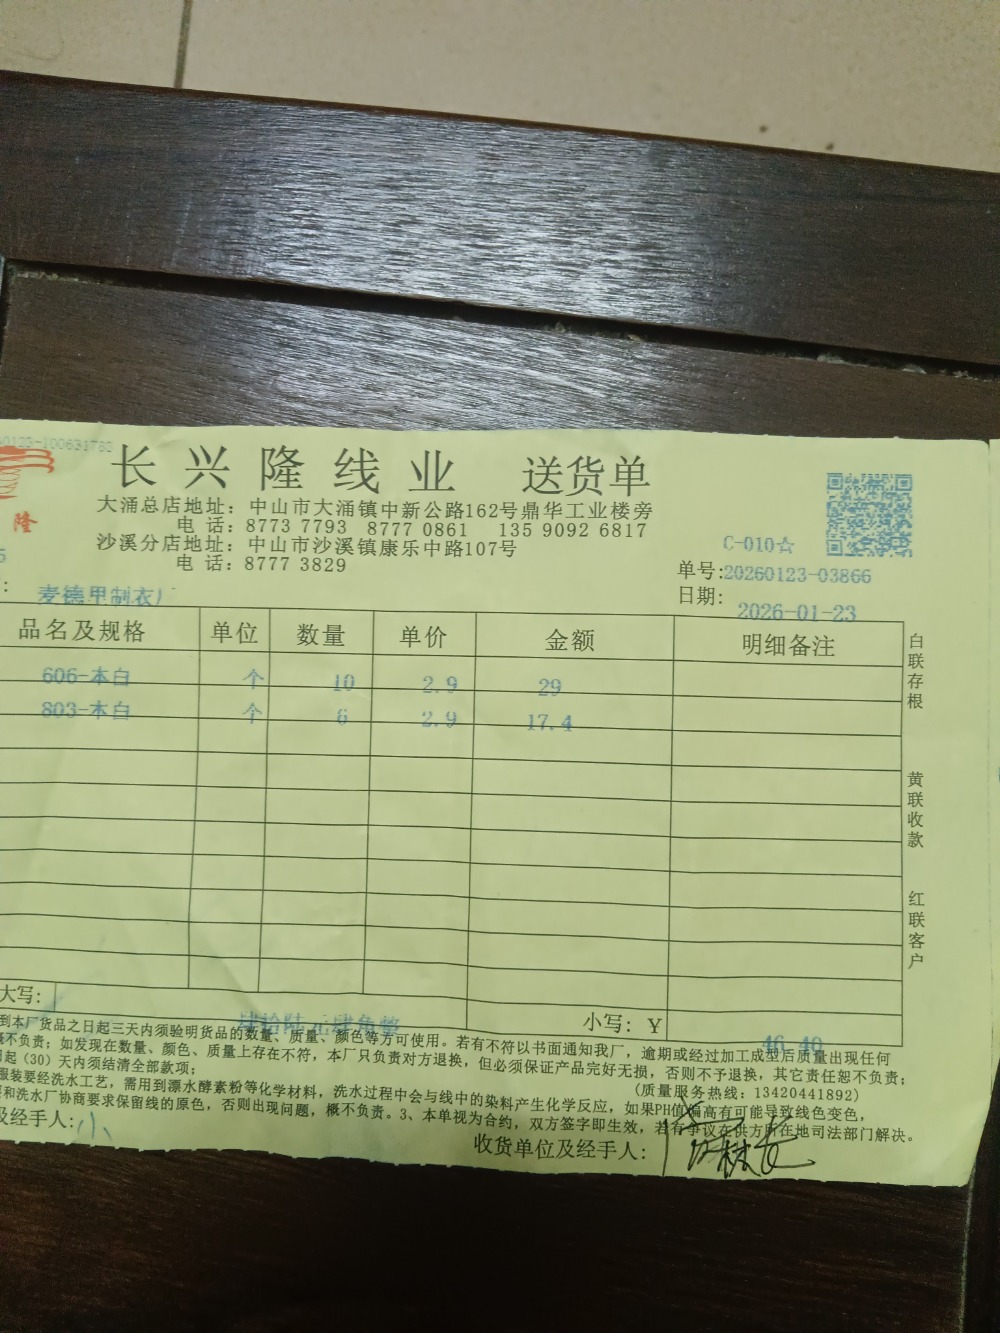 0123-100631782
长兴隆线业 送货单
隆
大涌总店地址：中山市大涌镇中新公路162号鼎华工业楼旁
电 话：8773 7793 8777 0861 135 9092 6817
沙溪分店地址：中山市沙溪镇康乐中路107号
电 话：8777 3829
C-010☆
单号:20260123-03866
日期: 2026-01-23
5
: 麦德甲制衣厂
品名及规格 单位 数量 单价 金额 明细备注
606-本白 个 10 2.9 29
803-本白 个 6 2.9 17.4
白联存根
黄联收款
红联客户
大写: 肆拾陆元肆角整 小写: ¥ 46.40
到本厂货品之日起三天内须验明货品的数量、质量、颜色等方可使用。若有不符以书面通知我厂，逾期或经过加工成型后质量出现任何
概不负责；如发现在数量、颜色、质量上存在不符，本厂只负责对方退换，但必须保证产品完好无损，否则不予退换，其它责任恕不负责；
日起（30）天内须结清全部款项；
(质量服务热线: 13420441892)
服装要经洗水工艺，需用到漂水酵素粉等化学材料，洗水过程中会与线中的染料产生化学反应，如果PH值偏高有可能导致线色变色，
和洗水厂协商要求保留线的原色，否则出现问题，概不负责。3、本单视为合约，双方签字即生效，若有争议在供方所在地司法部门解决。
及经手人: 小
收货单位及经手人: